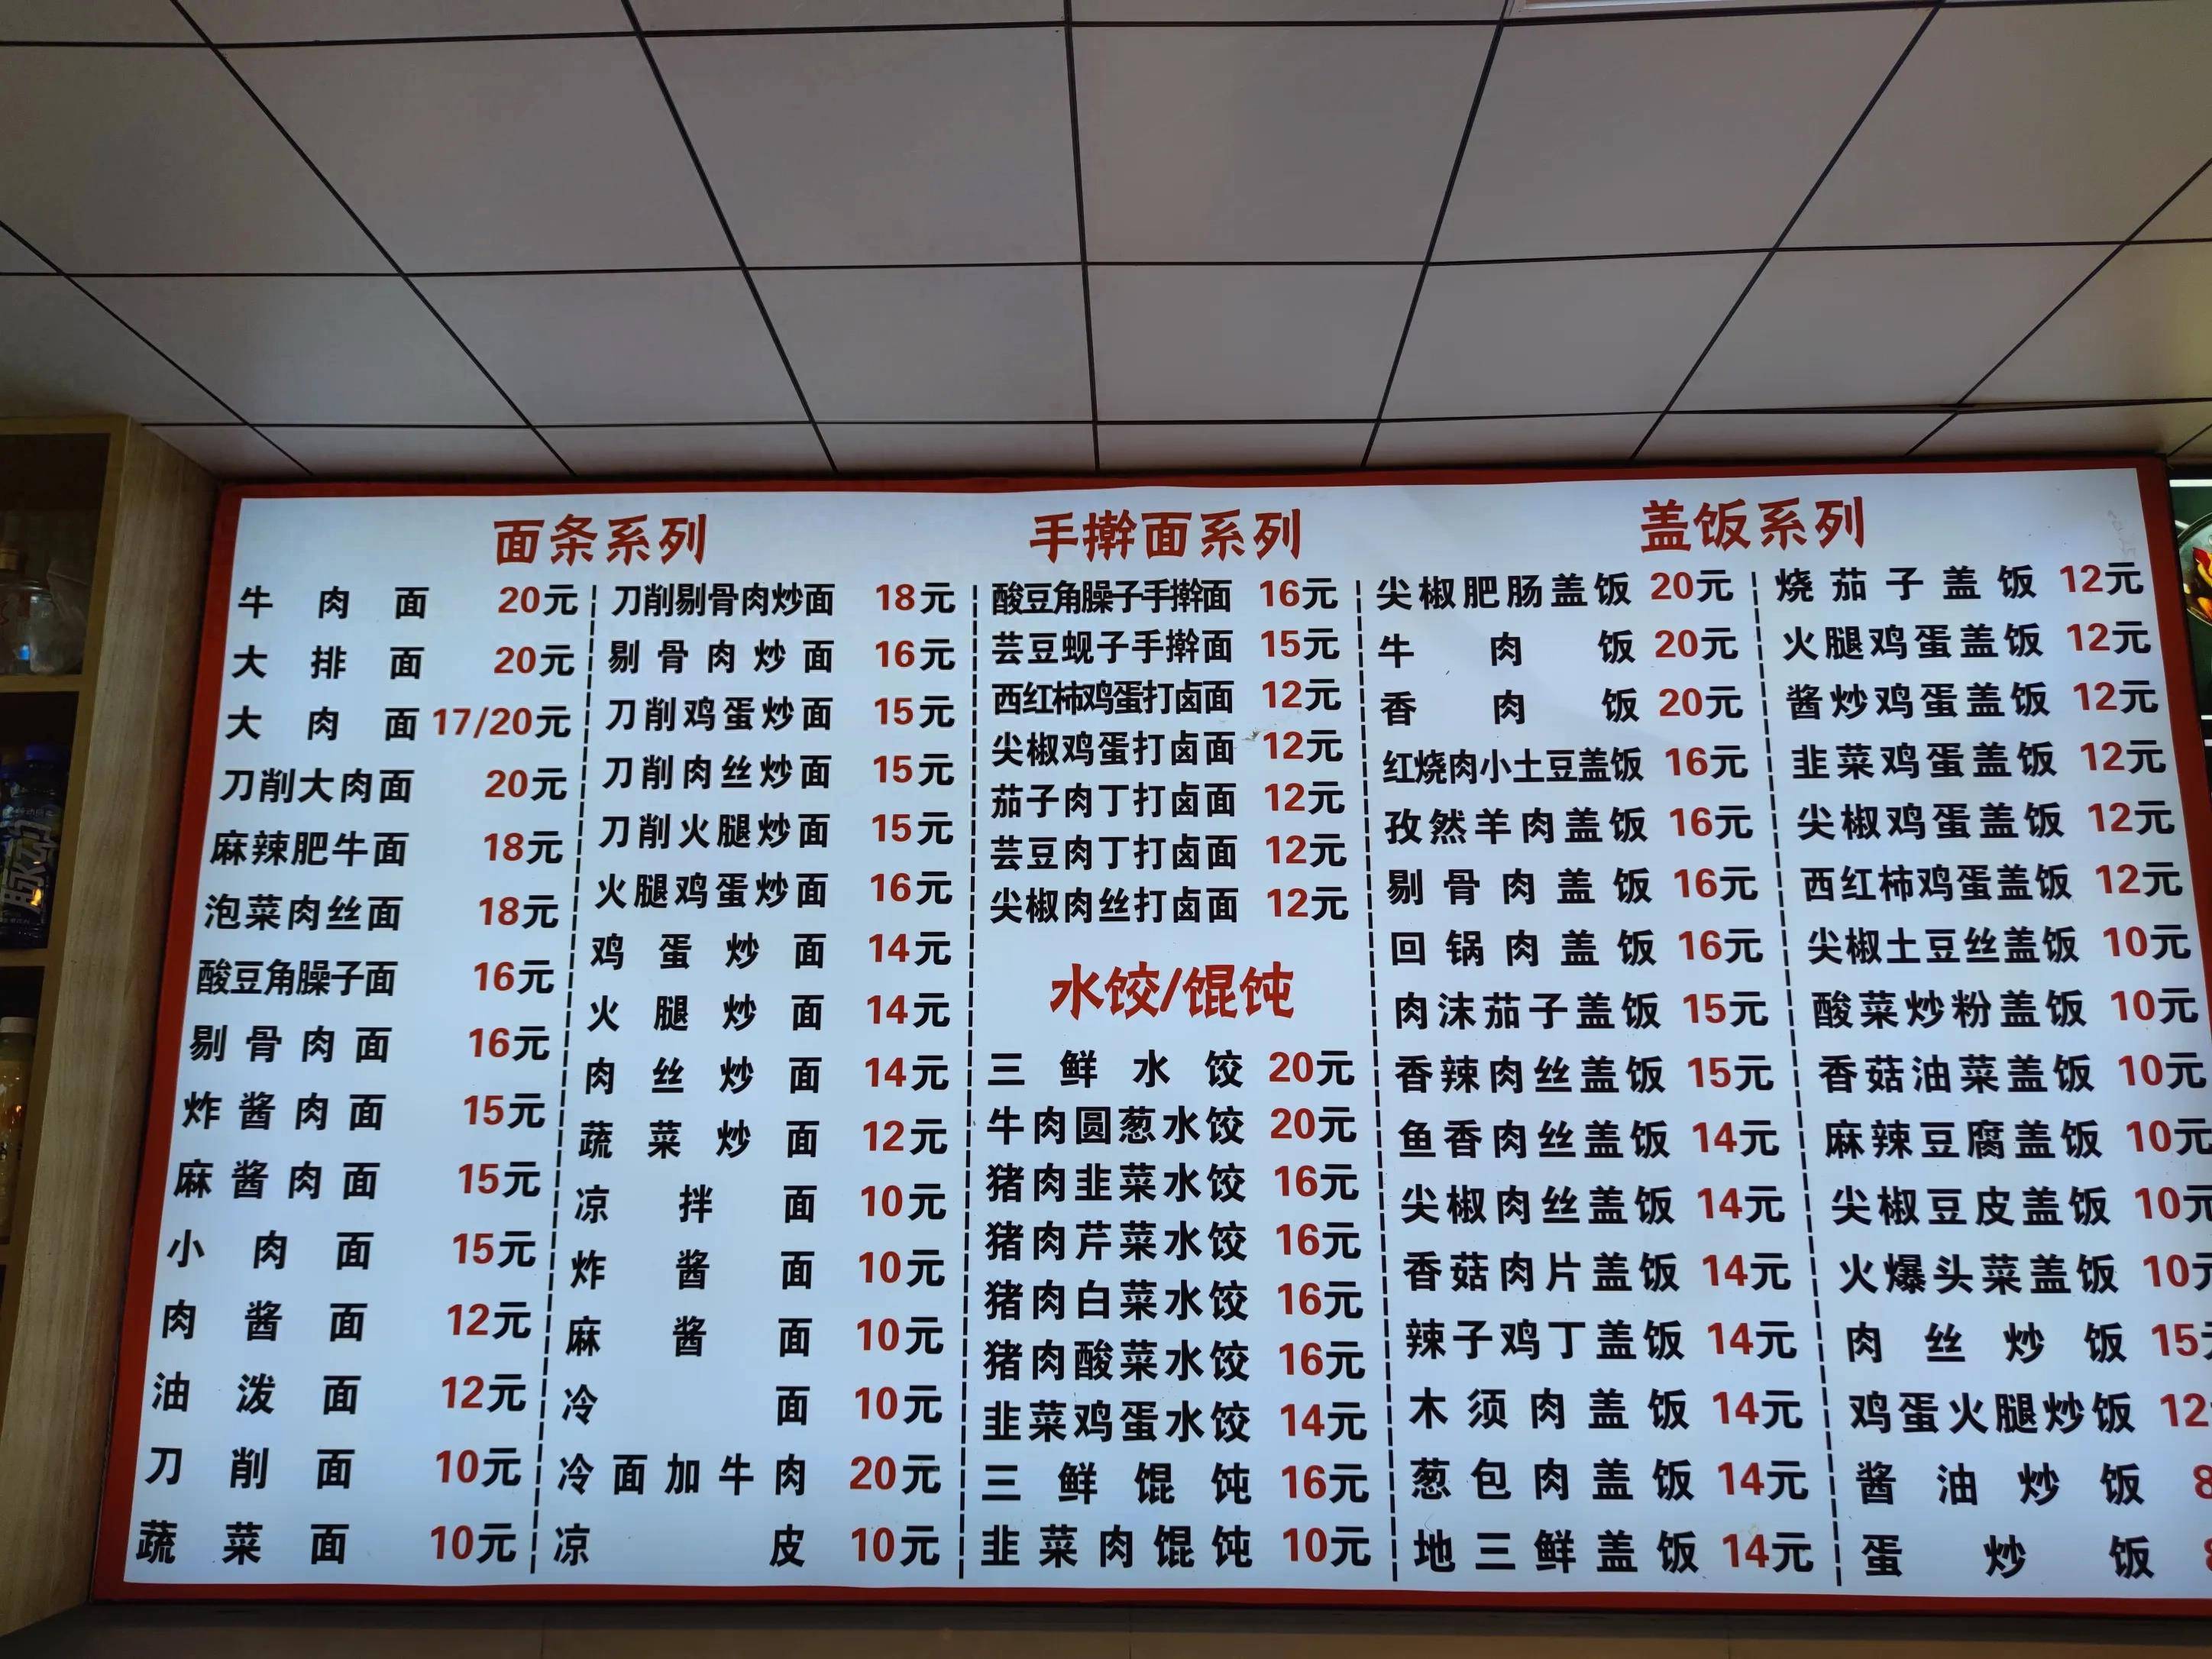 面条系列
牛肉面 20元
大排面 20元
大肉面 17/20元
刀削大肉面 20元
麻辣肥牛面 18元
泡菜肉丝面 18元
酸豆角臊子面 16元
剔骨肉面 16元
炸酱肉面 15元
麻酱肉面 15元
小肉面 15元
肉酱面 12元
油泼面 12元
刀削面 10元
蔬菜面 10元
刀削剔骨肉炒面 18元
剔骨肉炒面 16元
刀削鸡蛋炒面 15元
刀削肉丝炒面 15元
刀削火腿炒面 15元
火腿鸡蛋炒面 16元
鸡蛋炒面 14元
火腿炒面 14元
肉丝炒面 14元
蔬菜炒面 12元
凉拌面 10元
炸酱面 10元
麻酱面 10元
冷面 10元
冷面加牛肉 20元
凉皮 10元
手擀面系列
酸豆角臊子手擀面 16元
芸豆蚬子手擀面 15元
西红柿鸡蛋打卤面 12元
尖椒鸡蛋打卤面 12元
茄子肉丁打卤面 12元
芸豆肉丁打卤面 12元
尖椒肉丝打卤面 12元
水饺/馄饨
三鲜水饺 20元
牛肉圆葱水饺 20元
猪肉韭菜水饺 16元
猪肉芹菜水饺 16元
猪肉白菜水饺 16元
猪肉酸菜水饺 16元
韭菜鸡蛋水饺 14元
三鲜馄饨 16元
韭菜肉馄饨 10元
盖饭系列
尖椒肥肠盖饭 20元
牛肉饭 20元
香肉饭 20元
红烧肉小土豆盖饭 16元
孜然羊肉盖饭 16元
剔骨肉盖饭 16元
回锅肉盖饭 16元
肉沫茄子盖饭 15元
香辣肉丝盖饭 15元
鱼香肉丝盖饭 14元
尖椒肉丝盖饭 14元
香菇肉片盖饭 14元
辣子鸡丁盖饭 14元
木须肉盖饭 14元
葱包肉盖饭 14元
地三鲜盖饭 14元
烧茄子盖饭 12元
火腿鸡蛋盖饭 12元
酱炒鸡蛋盖饭 12元
韭菜鸡蛋盖饭 12元
尖椒鸡蛋盖饭 12元
西红柿鸡蛋盖饭 12元
尖椒土豆丝盖饭 10元
酸菜炒粉盖饭 10元
香菇油菜盖饭 10元
麻辣豆腐盖饭 10元
尖椒豆皮盖饭 10元
火爆头菜盖饭 10元
肉丝炒饭 15元
鸡蛋火腿炒饭 12
酱油炒饭 8
蛋炒饭
脉动